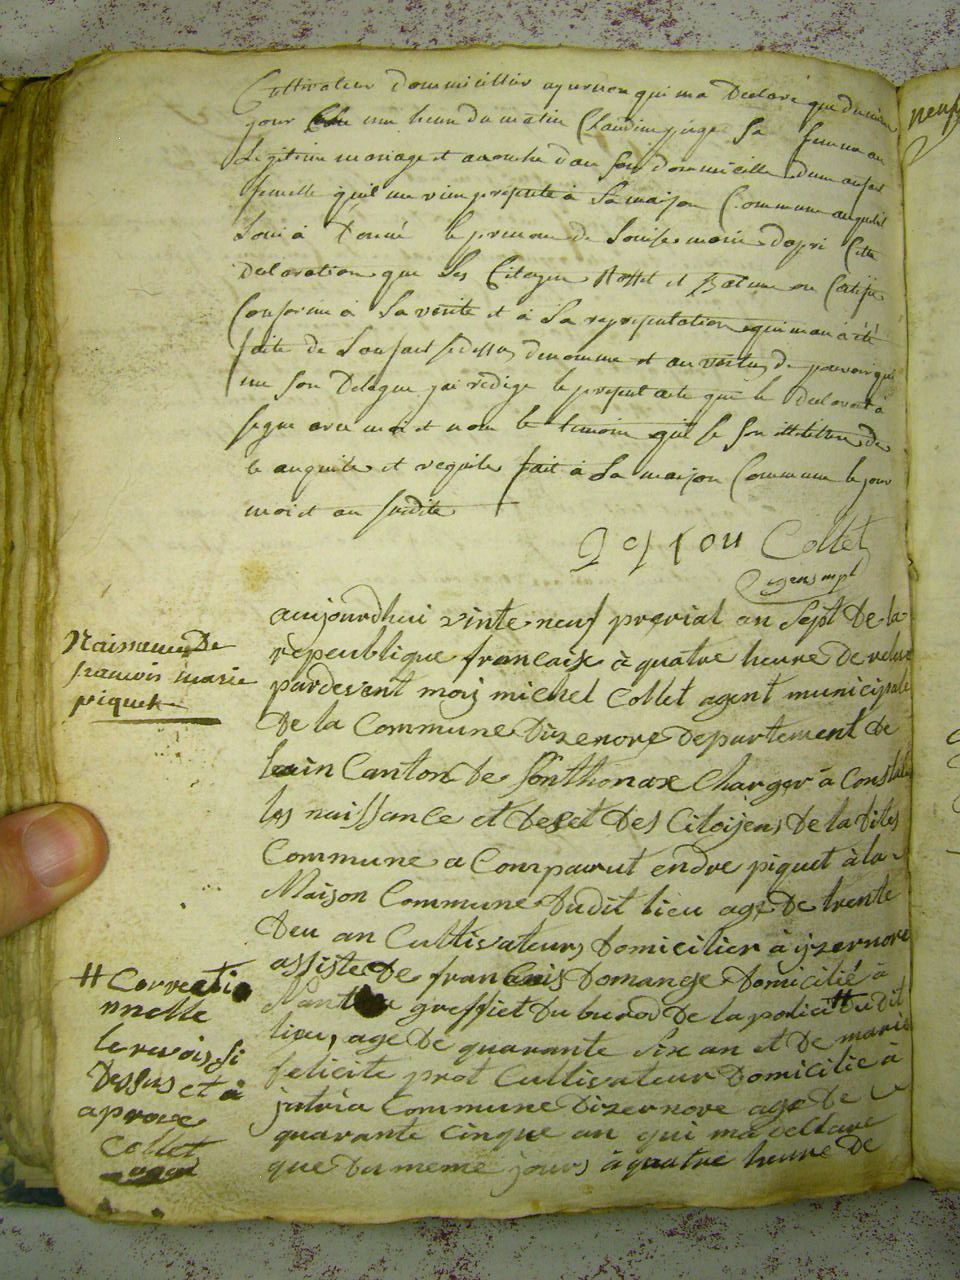 Cultivateur Domicillier ayernore qui ma Declaré que du mime
jour une heure du matin Claudine sa femme en
Legitime mariage et acouche dan son dommicille dune anfant
femelle quil me vien presente à la maison Commune auquel il
Soui à Donné le prenom de Louise marie dapri Cette
declaration que les Citoyen et on Certifie
Conforme à la verite et à la representation qui man à été
faite de Lanfant sedessu denomme et an vertu de pouvoir qui
me son Delegue jai redige le present acte que le declarant à
signe avec moi et non le temoin qui se son illitere de
ce anquite et requite fait à la maison Commune le jour
moi et an sudite
Collet
agent mpl
neuf
Naissance De
francois marie
piquet
aujourdhui vinte neuf prerial an Sept De la
republique francaix à quatre heure De releve
pardevent moij michel Collet agent municipale
De la Commune Dizenore Departement de
lain Canton De Sonthonax Charger à Constate
les naissance et Deset Des Citoijens De la dites
Commune a Comparut endre piquet à la
Maison Commune Dudit lieu age De trente
Deu an Cultivateurs Domicilier à ijzernore
assiste De francois Domange Domicilié à
Nantua greffiet Du burod De la police # udit
lieu, age De quarante six an et De marie
felicite prot Cultivateur Domicilié à
jutria Commune Dizernore age De
quarante cinque an qui ma decllare
que Du meme jours à quatre heure De
# Correctio
nnelle
le renvois si
Dessus et à
aprove
Collet
agent